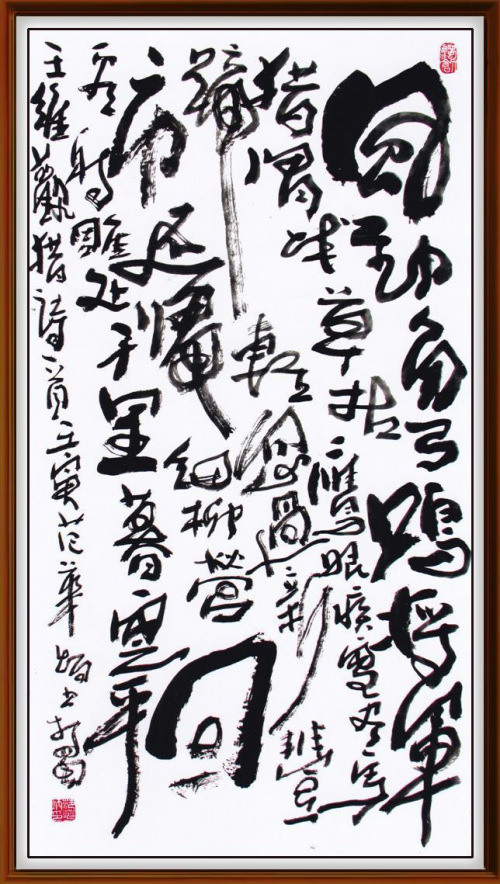 風勁角弓鳴將軍
猎渭城草枯鷹眼疾雪尽馬
蹄輕忽過新豐
市还歸細柳營回
看射雕处千里暮雲平
王維觀猎詩一首壬寅范華书於蜀